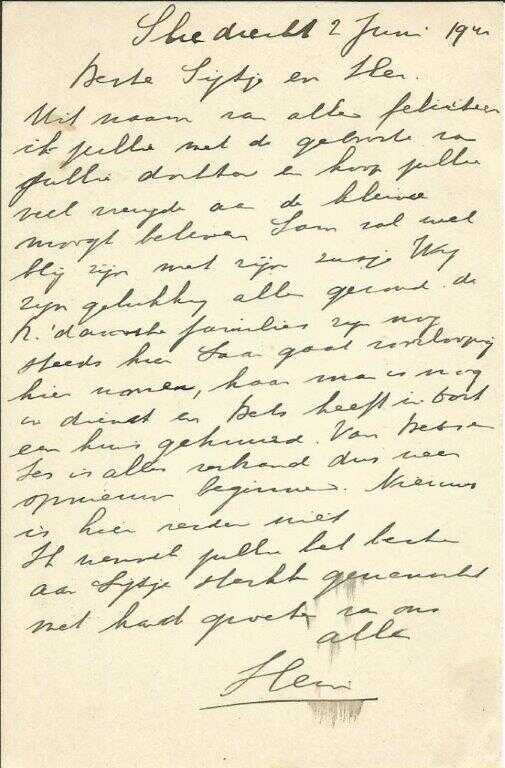 Sliedrecht 2 Juni 19
Beste Sijtje en Han.
Uit naam van allen feliciteer
ik jullie met de geboorte van
jullie dochter en hoop jullie
veel vreugde aan de kleine
moogt beleven Sam zal wel
blij zijn met zijn zusje Wij
zijn gelukkig allen gezond. de
R.'damsche families zijn nog
steeds hier Saar gaat voorloopig
hier wonen, haar man is nog
in dienst en Bets heeft in Dort
een huis gehuurd. Van
is alles verbrand dus weer
opnieuw beginnen. Nieuws
is hier verder niet
Ik wensch jullie het beste
aan Sijtje sterkte gewenscht
met hart groeten van ons
allen